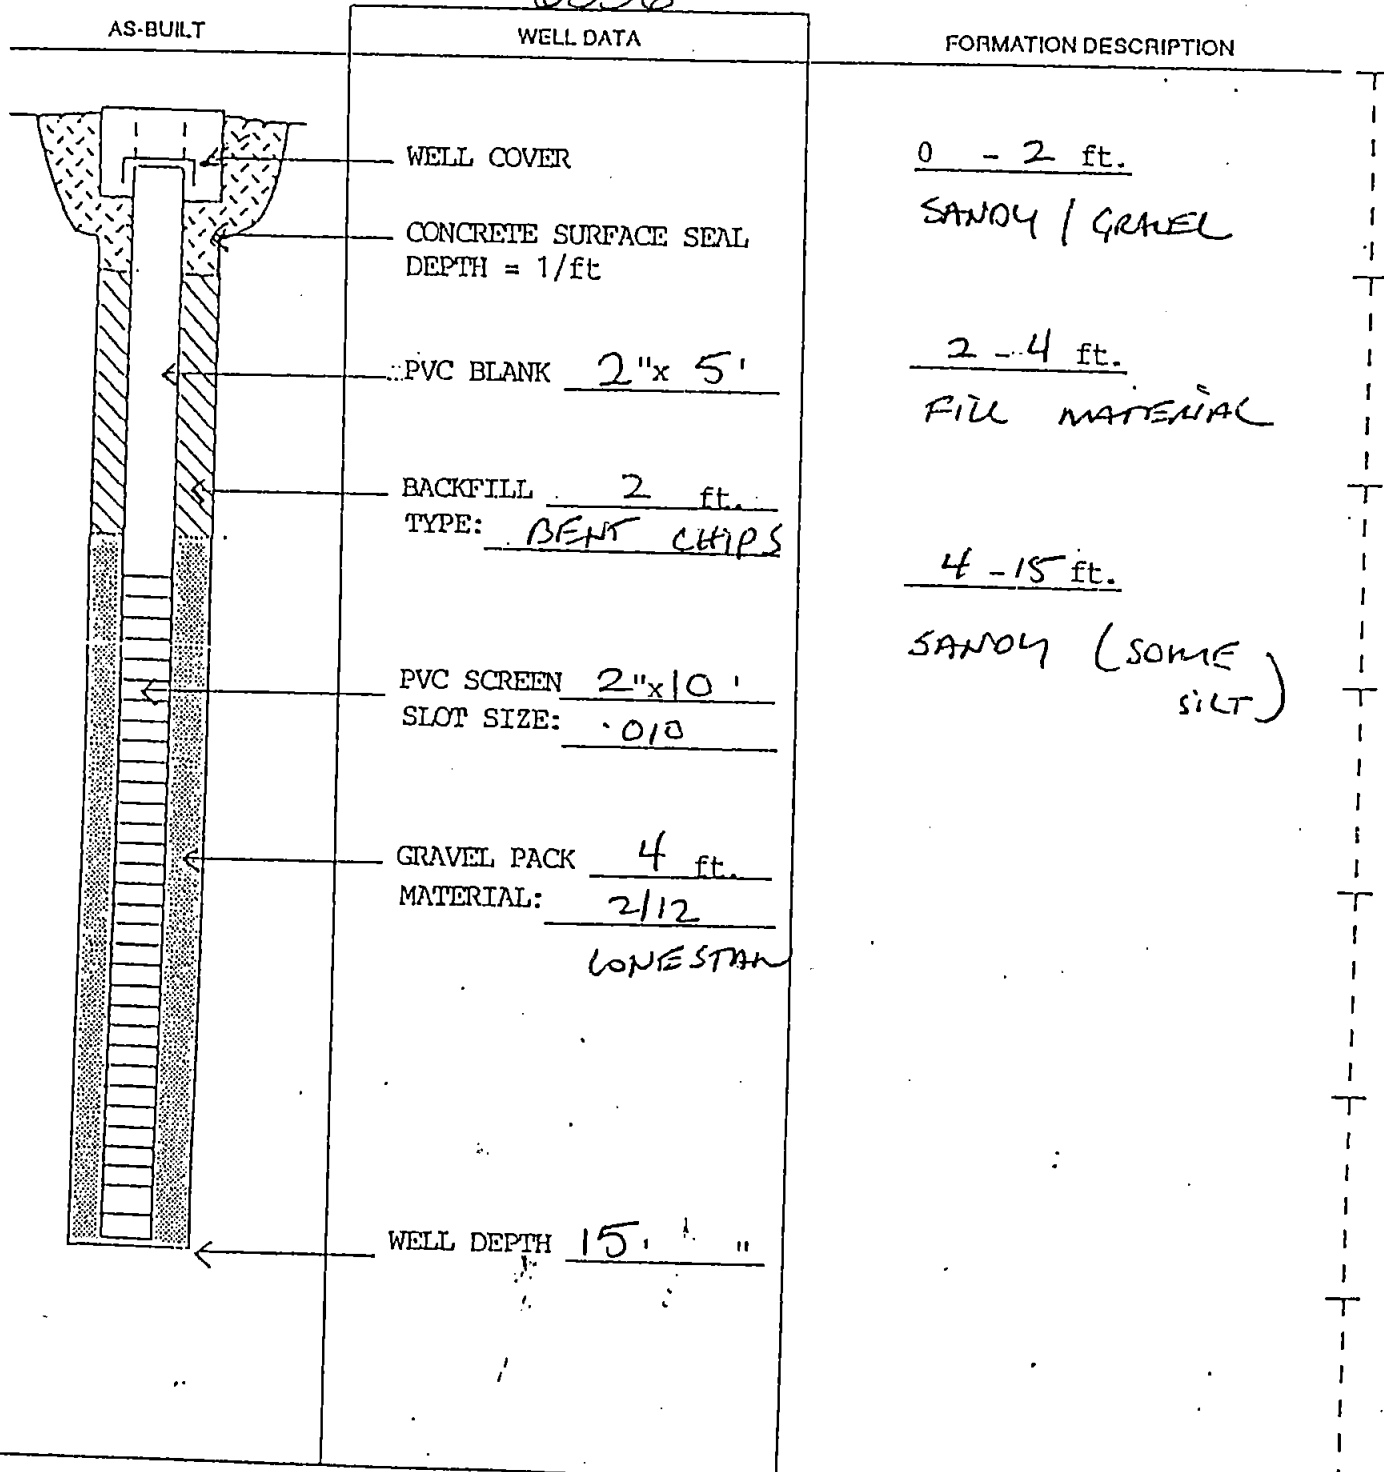 AS-BUILT
WELL DATA
FORMATION DESCRIPTION
WELL COVER
CONCRETE SURFACE SEAL
DEPTH = 1/ft
PVC BLANK 2"x 5'
BACKFILL 2 ft.
TYPE: BENT CHIPS
PVC SCREEN 2"x10'
SLOT SIZE: .010
GRAVEL PACK 4 ft.
MATERIAL: 2/12
LONESTAR
WELL DEPTH 15' "
0 - 2 ft.
SANDY / GRAVEL
2 - 4 ft.
FILL MATERIAL
4 - 15 ft.
SANDY (SOME
SILT)